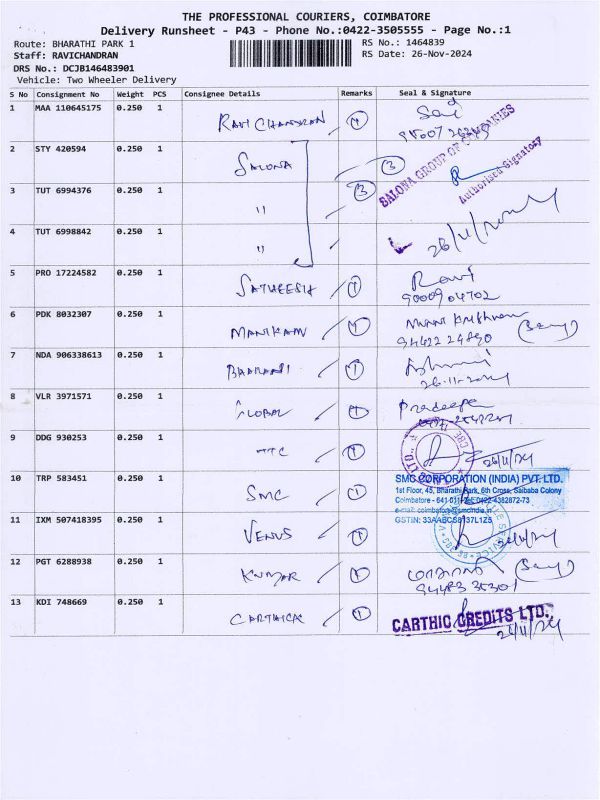 THE PROFESSIONAL COURIERS, COIMBATORE
Delivery Runsheet - P43 - Phone No.:0422-3505555 - Page No.:1
Route: BHARATHI PARK 1 RS No.: 1464839
Staff: RAVICHANDRAN RS Date: 26-Nov-2024
DRS No.: DCJB146483901
Vehicle: Two Wheeler Delivery
S No Consignment No Weight PCS Consignee Details Remarks Seal & Signature
1 MAA 110645175 0.250 1 RAVI CHANDRAN 1
2 STY 420594 0.250 1 SALONA 3
SALONA GROUP OF COMPANIES
Authorised Signatory
3 TUT 6994376 0.250 1 " 3
4 TUT 6998842 0.250 1 "
5 PRO 17224582 0.250 1 SATHEESH 1 Ravi
9000904702
6 PDK 8032307 0.250 1 MANIKAAN 1
94422 24890
7 NDA 906338613 0.250 1 BHARANI 1
26-11-2024
8 VLR 3971571 0.250 1 GLOBAL 1 Pradeepa
9 DDG 930253 0.250 1 TTC 1 26/11/24
10 TRP 583451 0.250 1 SMC 1 SMC CORPORATION (INDIA) PVT. LTD.
1st Floor, 45, Bharathi Park, 6th Cross, Saibaba Colony
Coimbatore - 641 011 Tel: 0422-4382872-73
e-mail: coimbatore@smcindia.in
GSTIN: 33AABCS8137L1Z5
11 IXM 507418395 0.250 1 VENUS 1
12 PGT 6288938 0.250 1 KUMAR 1
94483 35301
13 KDI 748669 0.250 1 CARTHICK 1 CARTHIC CREDITS LTD.
26/11/24